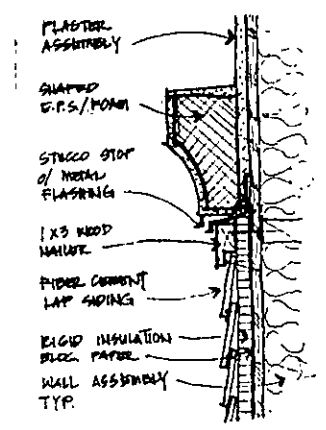 PLASTER
ASSEMBLY
SHAPED
E.P.S./FOAM
STUCCO STOP
o/ METAL
FLASHING
1X3 WOOD
NAILER
FIBER CEMENT
LAP SIDING
RIGID INSULATION
BLDG. PAPER
WALL ASSEMBLY
TYP.